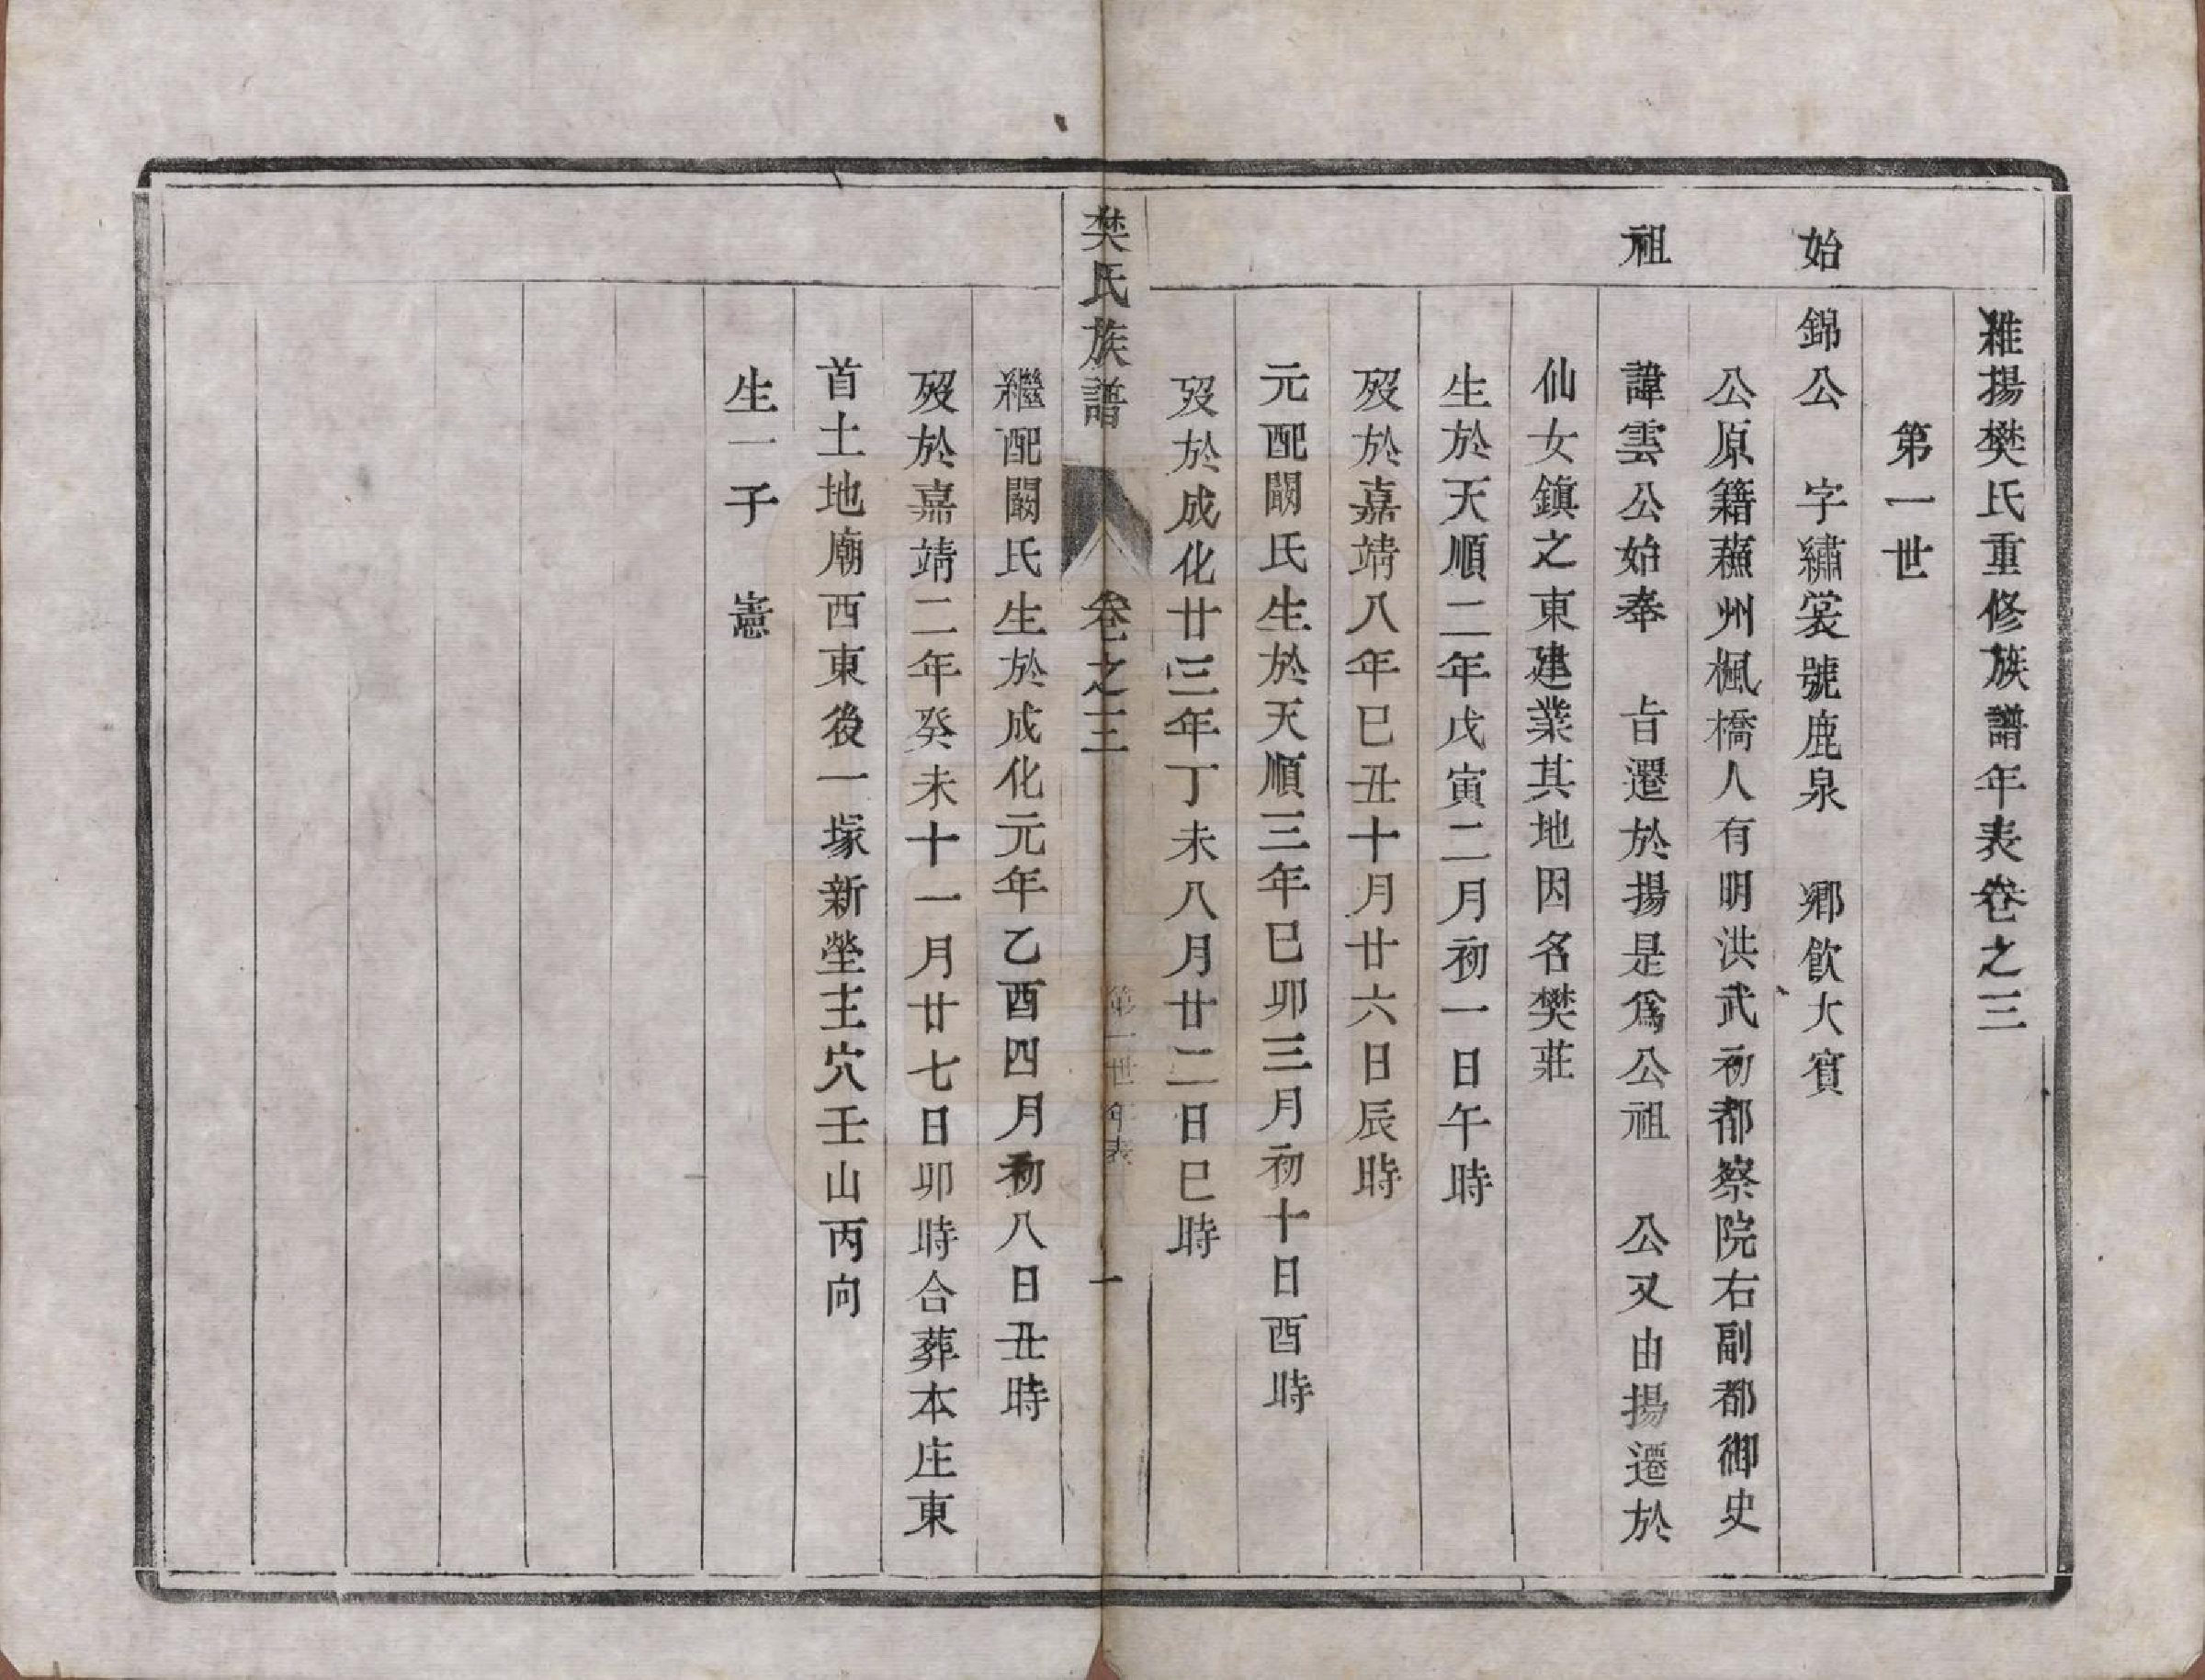 維揚樊氏重修族譜年表卷之三
第一世
始
錦公 字繡裳號鹿泉 鄉飲大賓
公原籍蘇州楓橋人有明洪武初都察院右副都御史
祖
諱雲公始奉 旨遷於揚是爲公祖 公又由揚遷於
仙女鎮之東建業其地因名樊莊
生於天順二年戊寅二月初一日午時
歿於嘉靖八年巳丑十月廿六日辰時
元配闞氏生於天順三年巳卯三月初十日酉時
歿於成化廿三年丁未八月廿二日巳時
樊氏族譜 卷之三 第一世年表 一
繼配闞氏生於成化元年乙酉四月初八日丑時
歿於嘉靖二年癸未十一月廿七日卯時合葬本庄東
首土地廟西東後一塚新塋主穴壬山丙向
生一子 憲